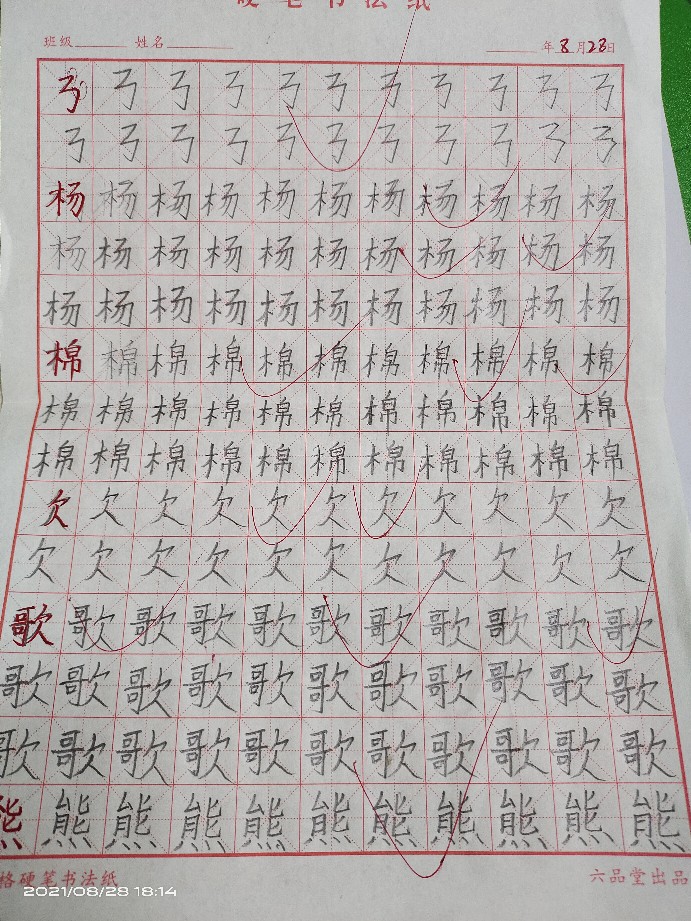 硬笔书法纸
班级 姓名 年8月28日
杨杨杨杨杨杨杨杨杨杨杨
杨杨杨杨杨杨杨杨杨杨杨
杨杨杨杨杨杨杨杨杨杨杨
棉棉棉棉棉棉棉棉棉棉棉
棉棉棉棉棉棉棉棉棉棉棉
棉棉棉棉棉棉棉棉棉棉棉
欠欠欠欠欠欠欠欠欠欠欠
欠欠欠欠欠欠欠欠欠欠欠
歌歌歌歌歌歌歌歌歌歌歌
歌歌歌歌歌歌歌歌歌歌歌
歌歌歌歌歌歌歌歌歌歌歌
熊熊熊熊熊熊熊熊熊熊熊
格硬笔书法纸 六品堂出品
2021/08/28 18:14